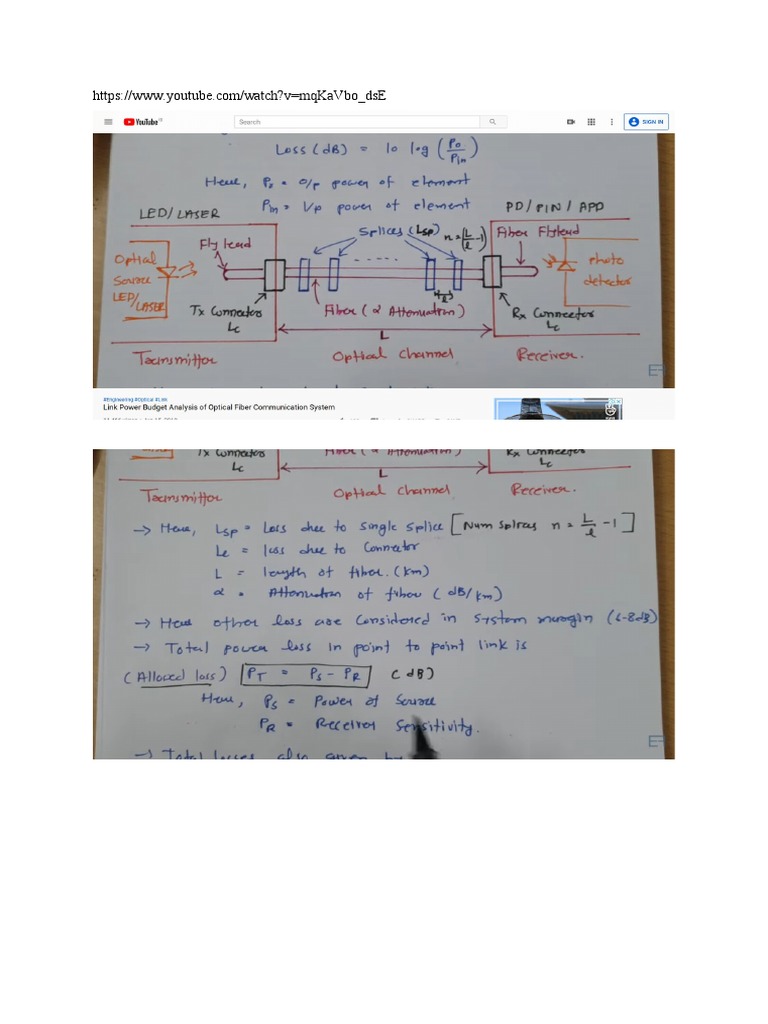 https://www.youtube.com/watch?v=mqKaVbo_dsE
YouTube
Search
SIGN IN
Loss (dB) = 10 log (Po/Pin)
Here, Po = O/p power of element
Pin = I/p power of element
LED/LASER
PD/PIN/APD
Splices (Lsp)
n = (L/l - 1)
Fiber Flylead
Fly lead
Optical
Source
LED/
LASER
Photo
detector
l
Tx Connector
Lc
Fiber (α Attenuation)
Rx Connector
Lc
L
Transmitter
Optical Channel
Receiver.
#Engineering #Optical #Link
Link Power Budget Analysis of Optical Fiber Communication System
Tx Connector
Lc
Fiber (α Attenuation)
Rx Connector
Lc
L
Transmitter
Optical Channel
Receiver.
→ Here, Lsp = Loss due to single splice [Num splices n = L/l - 1]
Lc = loss due to Connector
L = length of fiber. (km)
α = Attenuation of fiber (dB/km)
→ Here other loss are Considered in system margin (6-8dB)
→ Total power loss in point to point link is
(Allowed loss) PT = PS - PR (dB)
Here, PS = Power of Source
PR = Receiver Sensitivity.
→ Total losses also given by